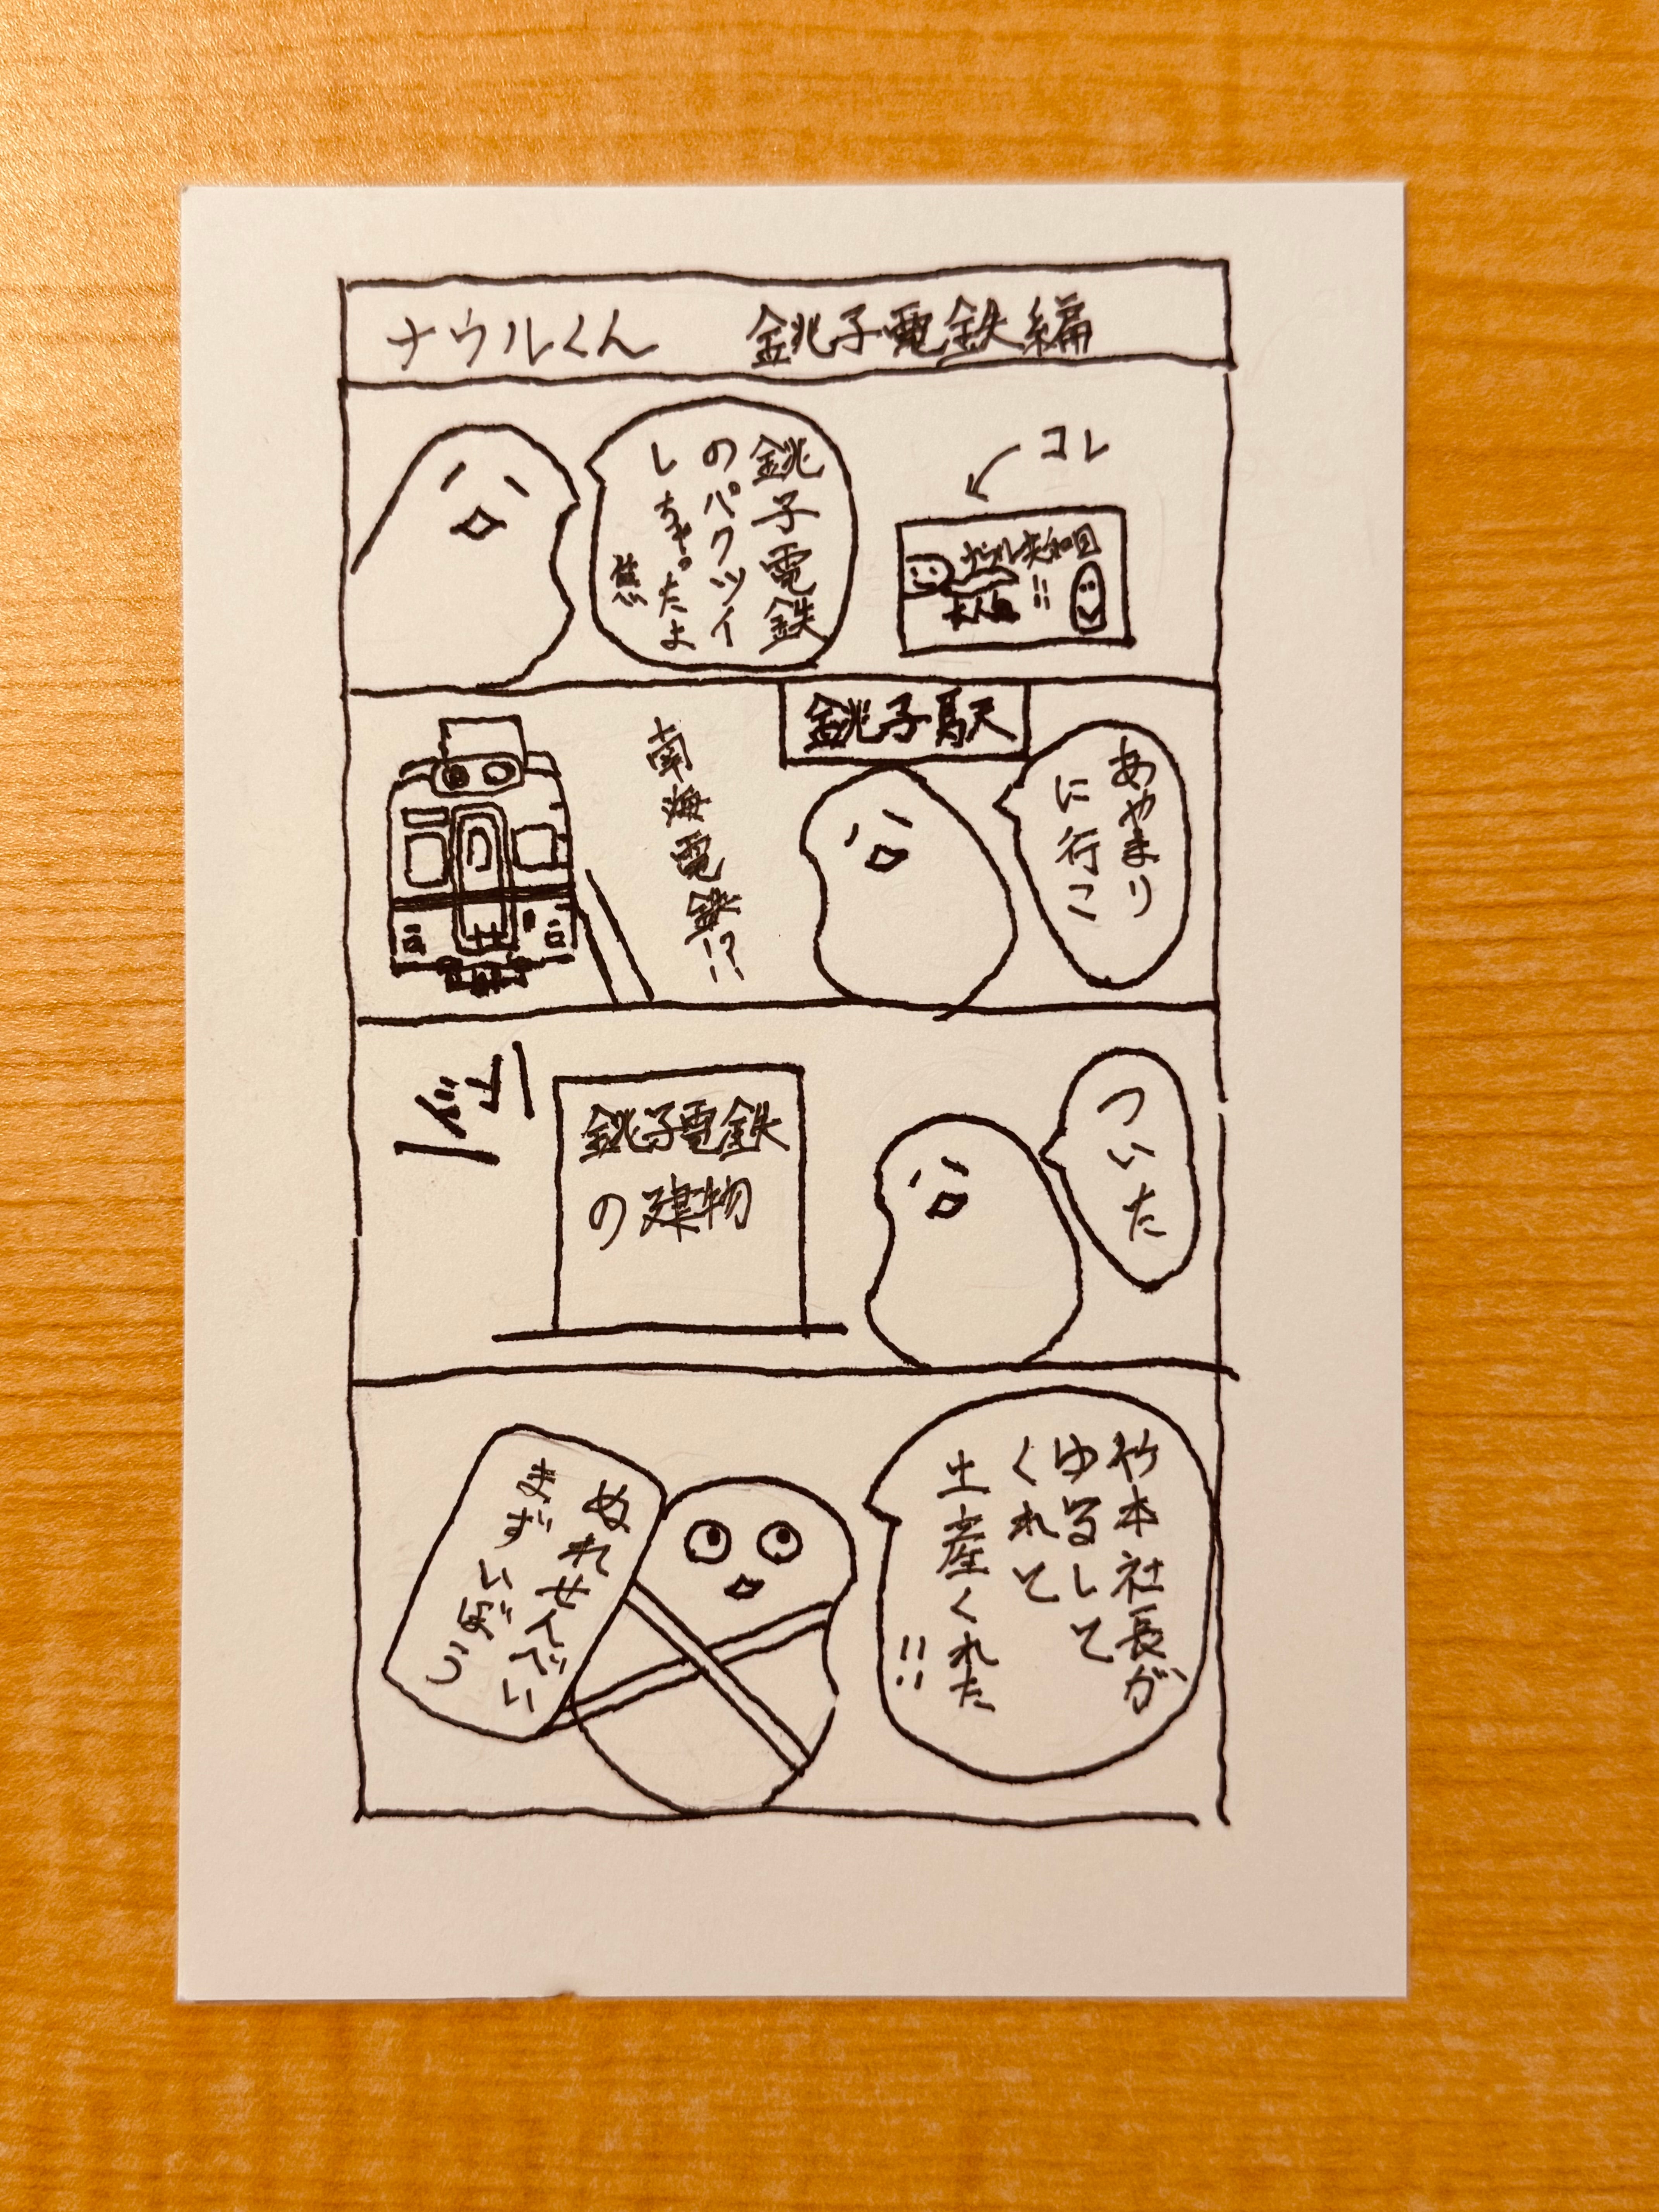 ナウルくん　銚子電鉄編
銚子電鉄
のパクツイ
しちゃったよ
焦
コレ
ナウル共和国
!!
銚子駅
あやまり
に行こ
南海電鉄!?
ついた
銚子電鉄
の建物
竹本社長が
ゆるして
くれて
土産くれた
!!
ぬれせんべい
まずいぼう